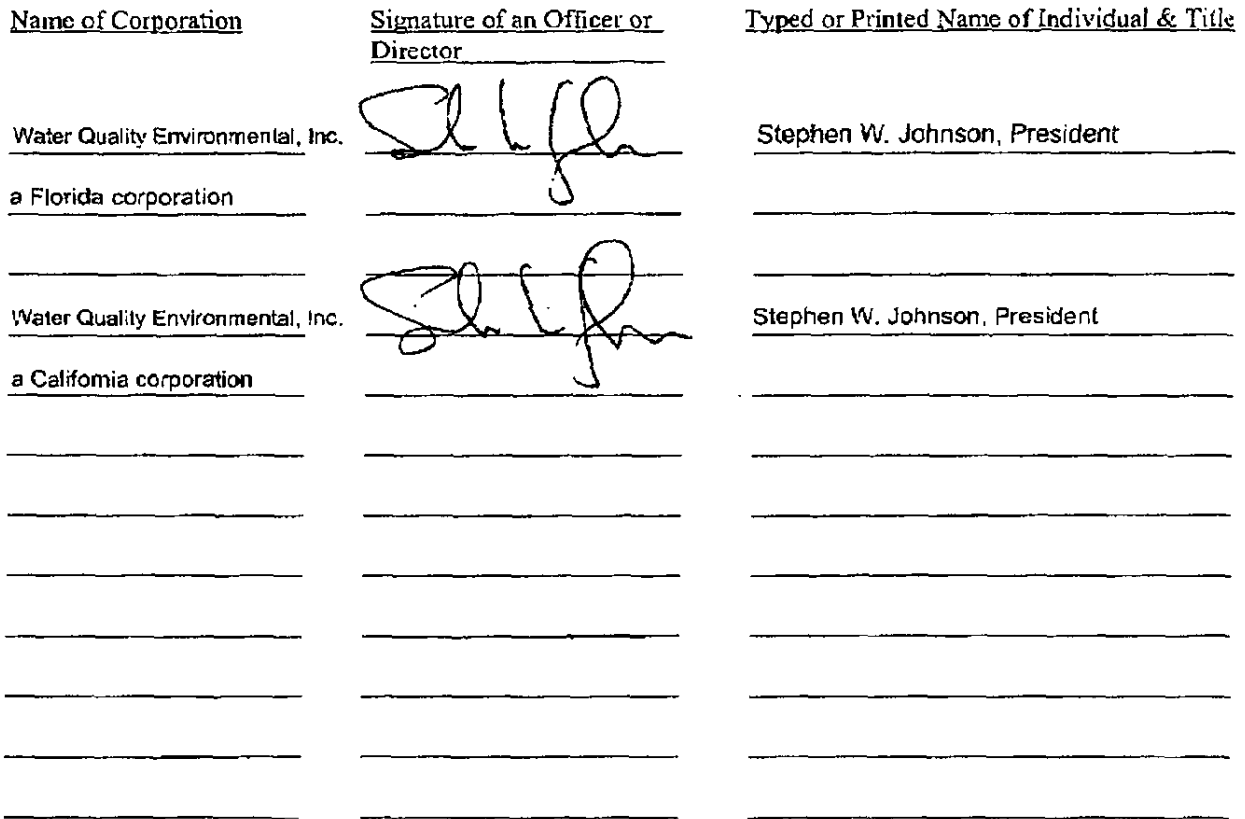 Name of Corporation
Signature of an Officer or
Director
Typed or Printed Name of Individual & Title
Water Quality Environmental, Inc.
Stephen W. Johnson, President
a Florida corporation
Water Quality Environmental, Inc.
Stephen W. Johnson, President
a California corporation